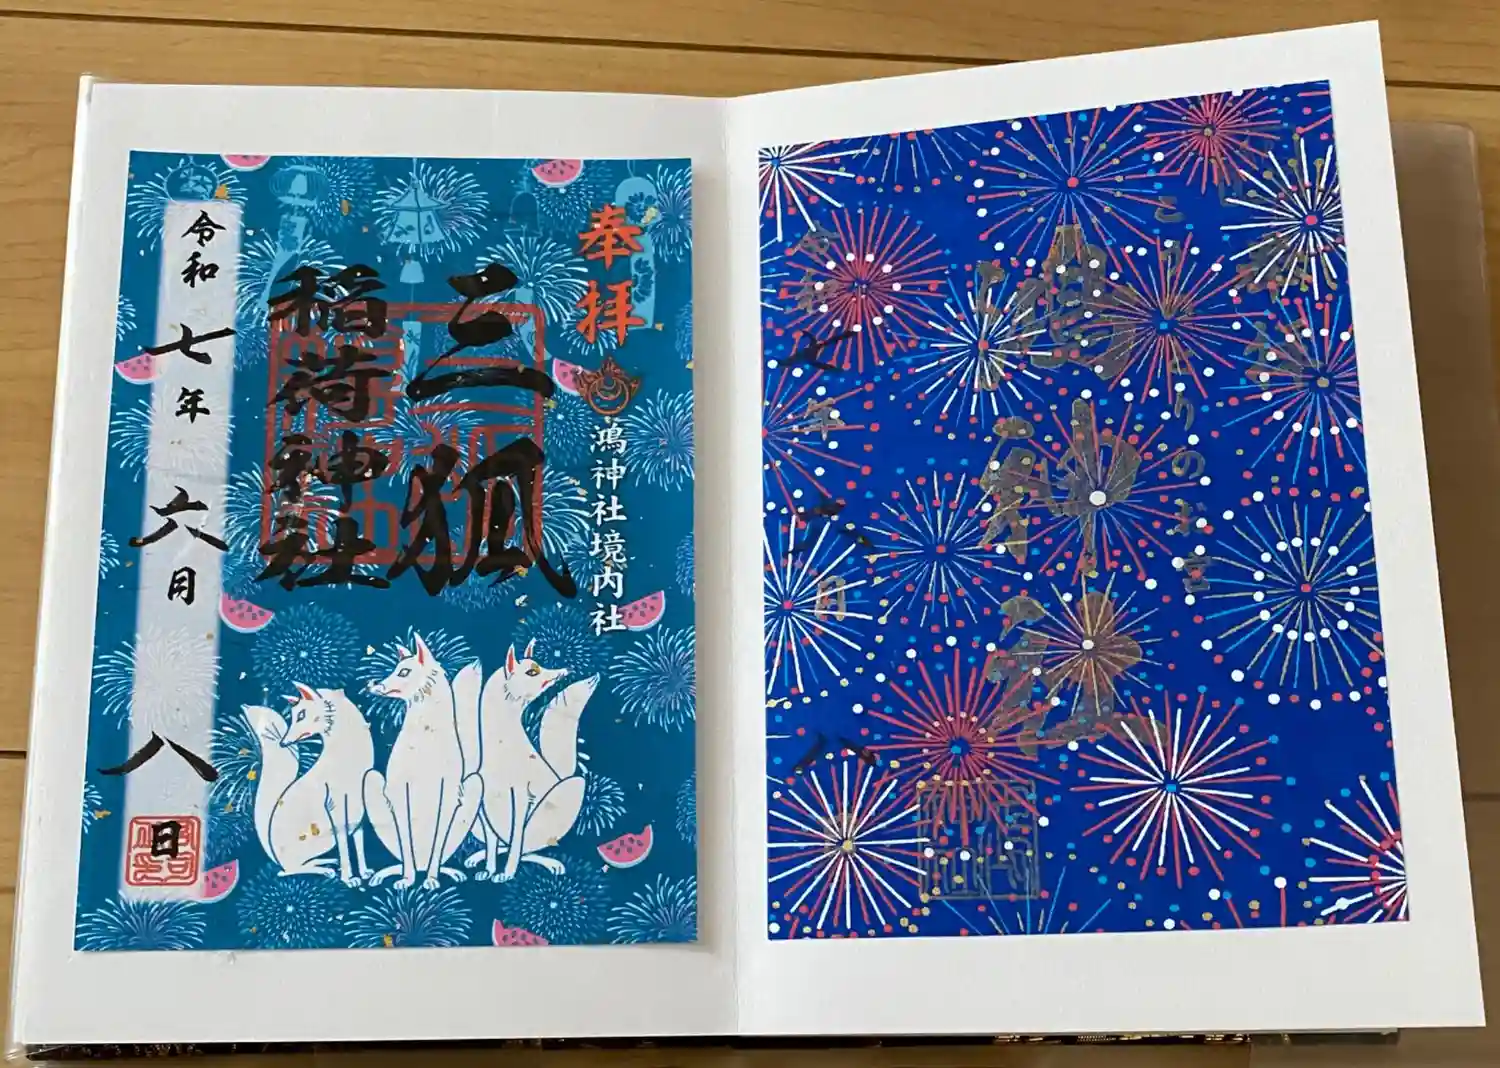 こうのとりのお宮
鴻神社
令和七年六月八
奉拝
鴻神社境内社
三狐
稲荷神社
令和七年六月八日